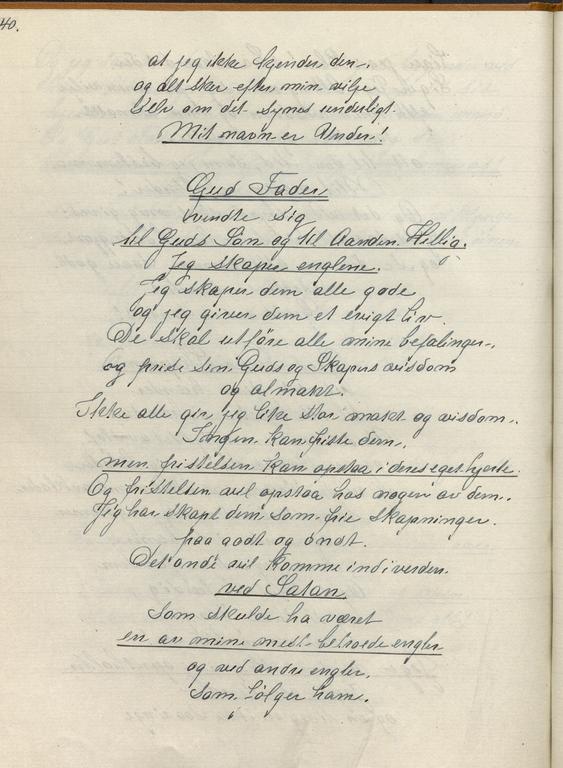 40.
at jeg ikke kjender den.
og alt sker efter min vilje
selv om det synes underligt.
Mit navn er Under!
Gud Fader
vendte sig
til Guds Sön og til Aanden Hellig.
Jeg skaper englene.
Jeg skaper dem alle gode
og jeg giver dem et evigt liv.
De skal utföre alle mine befalinger.
og prise sin Guds og Skapers visdom
og almakt.
Ikke alle gir jeg like stor makt og visdom.
Ingen kan friste dem.
men fristelsen kan opstaa i deres eget hjerte.
Og fristelsen vil opstaa hos nogen av dem.
Jeg har skapt dem som frie skapninger.
paa godt og ondt.
Det onde vil komme ind i verden.
ved Satan
som skulde ha været
en av mine mest betroede engler
og ved andre engler.
som fölger ham.